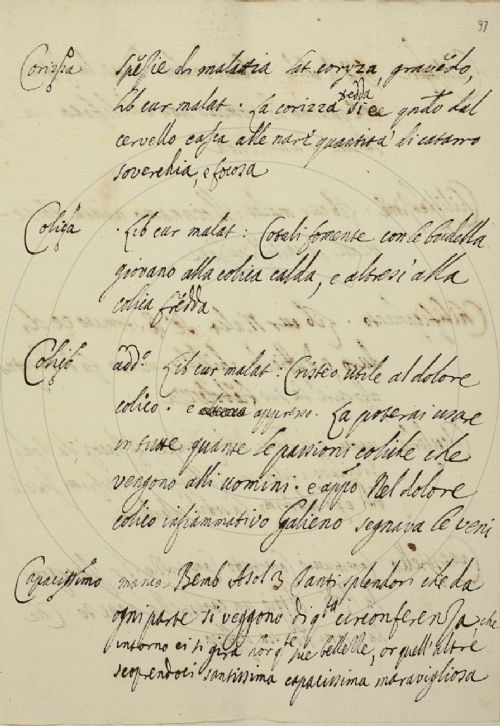 93
Corizza spezie di malatia lat. coryza, gravedo,
Lib cur malat. La corizza fredda si è qndo dal
cervello casca alle nare quantità di catarro
soverchia, e focosa
Colica . Lib cur malat: Cotali fomente con le budella
giovano alla colica calda, e altresì alla
colica fredda
Colico add.º Lib cur malat: Cristeo utile al dolore
colico. e appresso. La poterai usare
in tutte quante le passioni coliche che
vengono alli uomini. e appº Nel dolore
colico infiammativo Galieno segnava le veni
Capacissimo manca Bemb Asol 3 Santi splendori che da
ogni parte si veggono di qta circonferenza, che
intorno ci si gira hor qte sue bellezze, or quell'altre
scoprendoci santissima capacissima maravigliosa